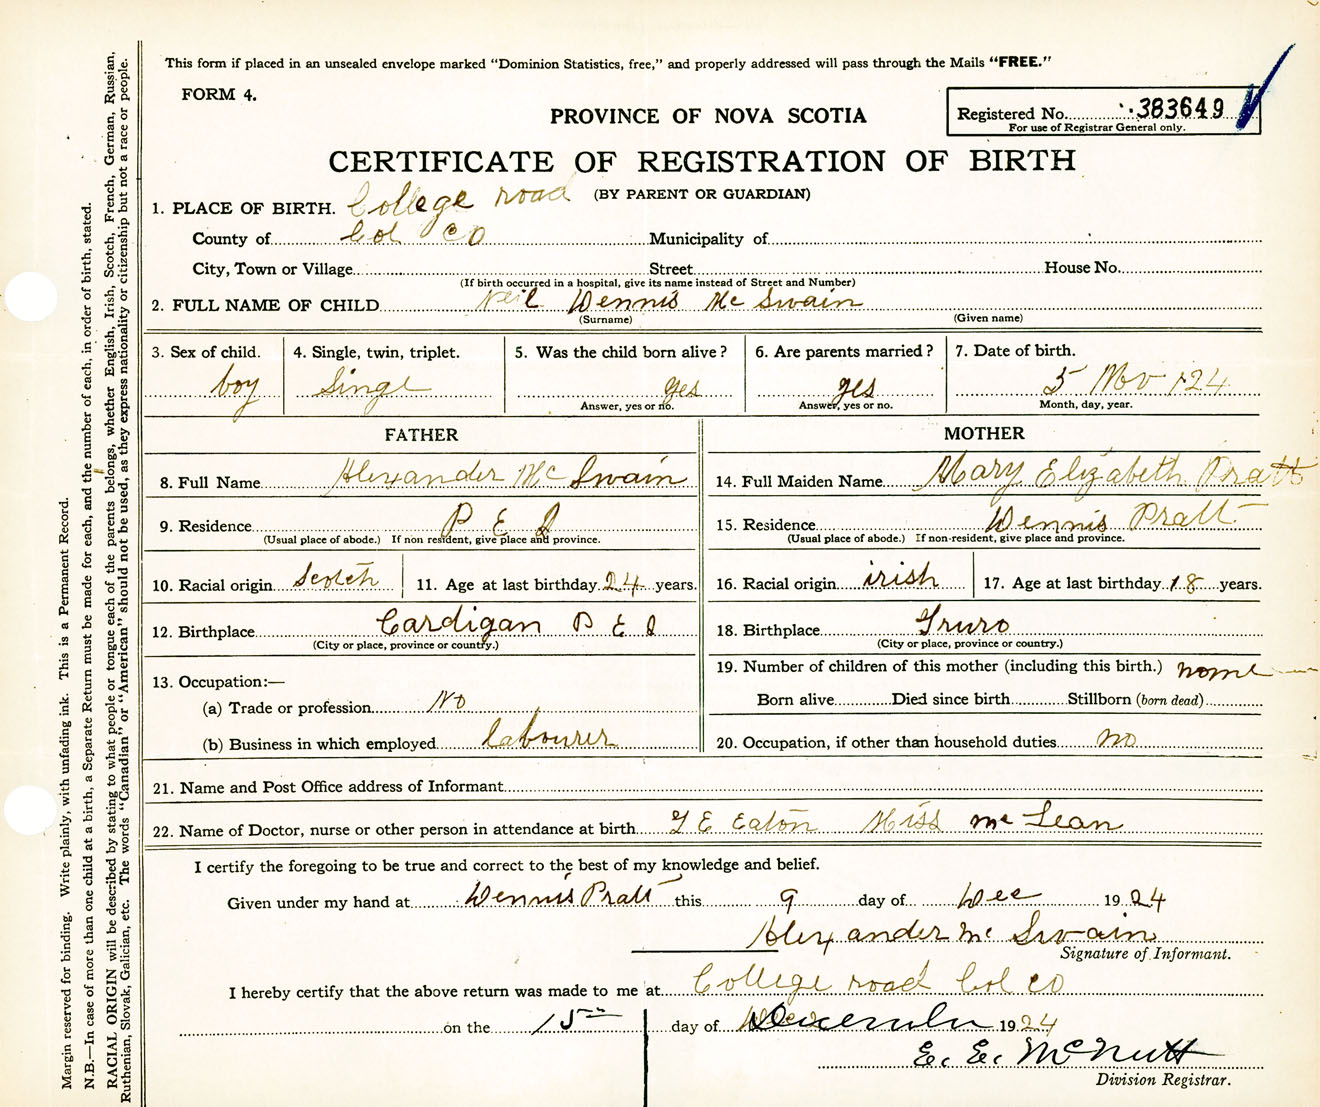 This form if placed in an unsealed envelope marked “Dominion Statistics, free,” and properly addressed will pass through the Mails “FREE.”
FORM 4.
PROVINCE OF NOVA SCOTIA
Registered No. 383649
For use of Registrar General only.
CERTIFICATE OF REGISTRATION OF BIRTH
(BY PARENT OR GUARDIAN)
1. PLACE OF BIRTH. College road
County of Col CO Municipality of
City, Town or Village Street House No.
(If birth occurred in a hospital, give its name instead of Street and Number)
2. FULL NAME OF CHILD Neil Dennis Mc Swain
(Surname) (Given name)
3. Sex of child. 4. Single, twin, triplet. 5. Was the child born alive? 6. Are parents married? 7. Date of birth.
boy Singl yes yes 5 Nov 124
Answer, yes or no. Answer, yes or no. Month, day, year.
FATHER MOTHER
8. Full Name Alexander Mc Swain 14. Full Maiden Name Mary Elizabeth Pratt
9. Residence P E I 15. Residence Dennis Pratt
(Usual place of abode.) If non resident, give place and province. (Usual place of abode.) If non-resident, give place and province.
10. Racial origin Scotch 11. Age at last birthday 24 years. 16. Racial origin irish 17. Age at last birthday 18 years.
12. Birthplace Cardigan P E I 18. Birthplace Truro
(City or place, province or country.) (City or place, province or country.)
13. Occupation:— 19. Number of children of this mother (including this birth.) none
(a) Trade or profession No Born alive Died since birth Stillborn (born dead)
(b) Business in which employed labourer 20. Occupation, if other than household duties no
21. Name and Post Office address of Informant
22. Name of Doctor, nurse or other person in attendance at birth E Eaton Miss Mc Lean
I certify the foregoing to be true and correct to the best of my knowledge and belief.
Given under my hand at Dennis Pratt this 9 day of Dec 1924
Alexander Mc Swain
Signature of Informant.
I hereby certify that the above return was made to me at College road Col CO
on the 15th day of December 1924
E. E. McNutt
Division Registrar.
Margin reserved for binding. Write plainly, with unfading ink. This is a Permanent Record.
N.B.—In case of more than one child at a birth, a Separate Return must be made for each, and the number of each, in order of birth, stated.
RACIAL ORIGIN will be described by stating to what people or tongue each of the parents belongs, whether English, Irish, Scotch, French, German, Russian,
Ruthenian, Slovak, Galician, etc. The words “Canadian” or “American” should not be used, as they express nationality or citizenship but not a race or people.